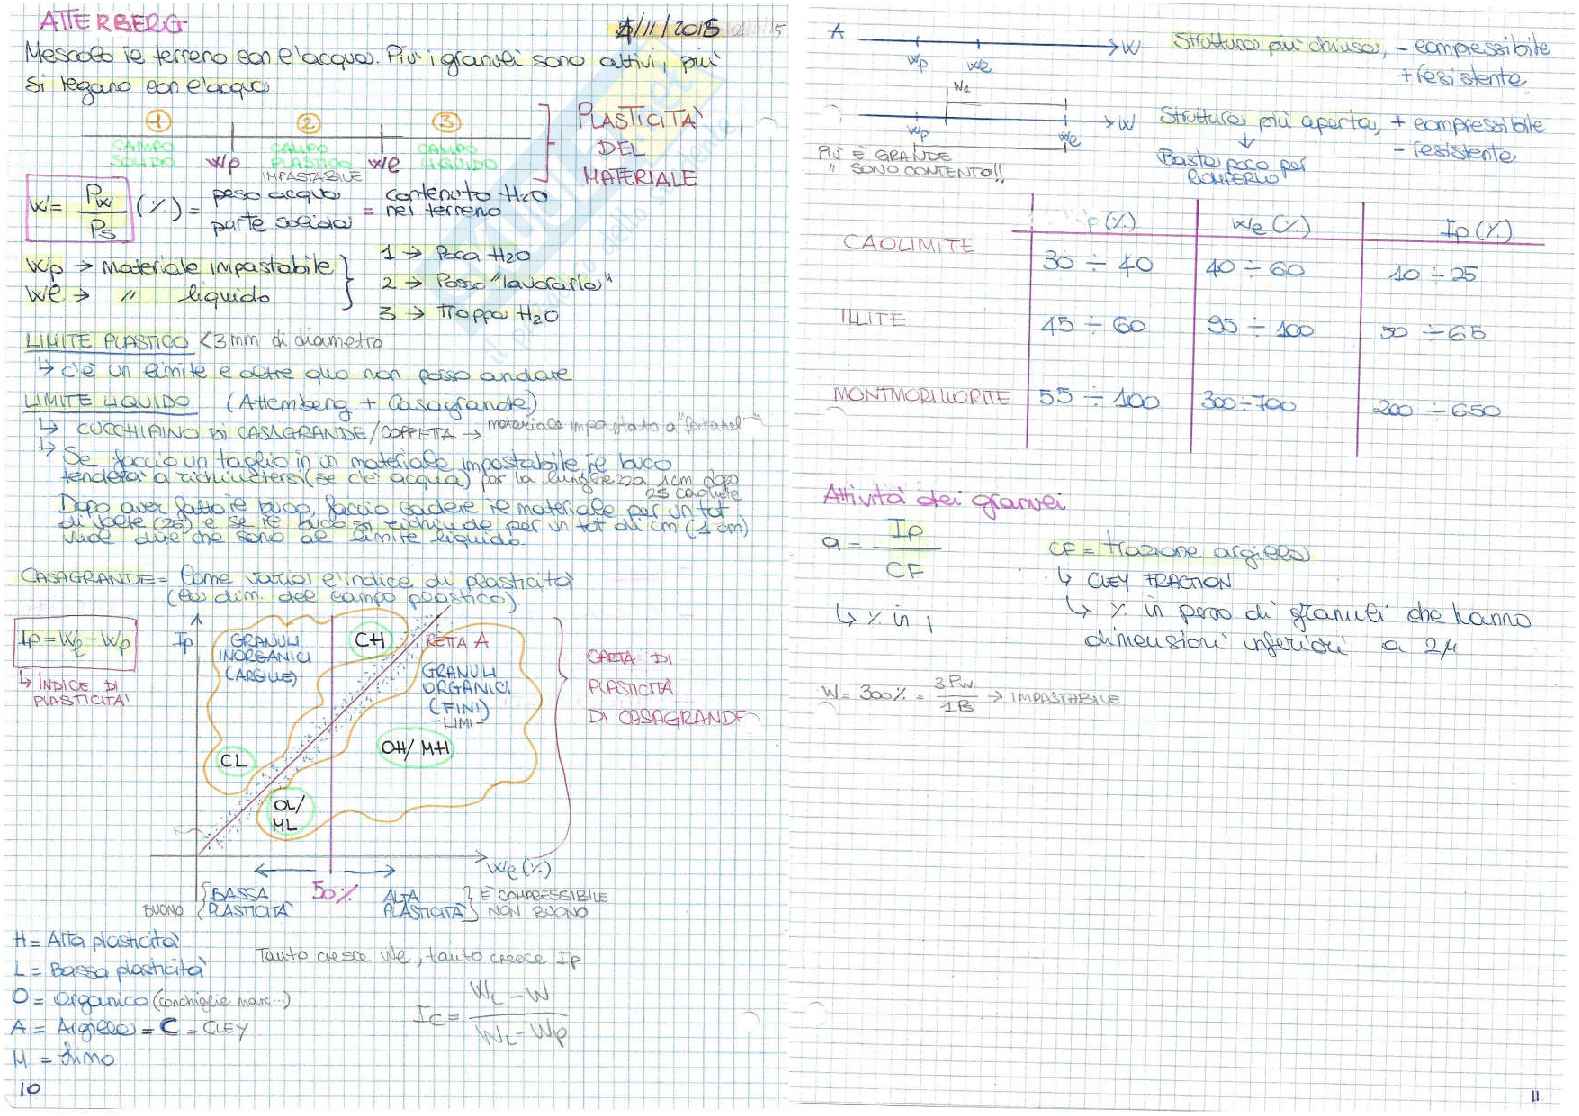 ATTERBERG
4/11/2015
Mescolo il terreno con l'acqua. Più i granuli sono attivi, più
si legano con l'acqua
1 2 3
CAMPO SOLIDO Wp CAMPO PLASTICO IMPASTABILE We CAMPO LIQUIDO
PLASTICITA' DEL MATERIALE
W = Pw/Ps (%) = peso acqua / parte solida = contenuto H2O nel terreno
Wp → Materiale impastabile
We → " liquido
1 → Poca H2O
2 → Posso "lavorarla"
3 → Troppa H2O
LIMITE PLASTICO <3mm di diametro
↳ c'è un limite e oltre quo non posso andare
LIMITE LIQUIDO (Attemberg + Casagrande)
↳ CUCCHIAINO DI CASAGRANDE/COPPETTA → materiale impastato a
↳ Se faccio un taglio in un materiale impastabile il buco
tenderà a richiudersi (se c'è acqua) per la lunghezza 1cm dopo
25 cadute
Dopo aver fatto il buco, faccio cadere il materiale per un tot
di volte (25) e se il buco si richiude per un tot di cm (1 cm)
vuol dire che sono al limite liquido.
CASAGRANDE = Come varia l'indice di plasticità
(la dim. del campo plastico)
Ip = We - Wp
↳ INDICE DI PLASTICITA'
Ip
GRANULI INORGANICI (ARGILLE)
CH
RETTA A
GRANULI ORGANICI (FINI) -LIMI-
CARTA DI PLASTICITA' DI CASAGRANDE
CL
OH/MH
OL/ML
We (%)
BUONO BASSA PLASTICITA' 50% ALTA PLASTICITA' E' COMPRESSIBILE NON BUONO
H = Alta plasticità
L = Bassa plasticità
O = Organico (conchiglie mare...)
A = Argilla = C = CLEY
M = Limo
Tanto cresce We, tanto cresce Ip
Ic = WL - W / WL - Wp
10
A Wp We W Struttura più chiusa, - compressibile
+ resistente
We
Wp We W Struttura più aperta, + compressibile
- resistente
↓
Basta poco per romperlo
PIÙ È GRANDE
" SONO CONTENTO!!
(%) We (%) Ip (%)
CAOLIMITE 30 ÷ 40 40 ÷ 60 10 ÷ 25
ILLITE 45 ÷ 60 95 ÷ 100 50 ÷ 65
MONTMORILLORITE 55 ÷ 100 300 ÷ 700 200 ÷ 650
Attività dei granuli
a = Ip / CF
CF = frazione argilla
↳ CLEY FRACTION
↳ % in peso di granuli che hanno
dimensioni inferiori a 2μ
↳ % in
W = 300% = 3Pw / 1Ps → IMPASTABILE
11